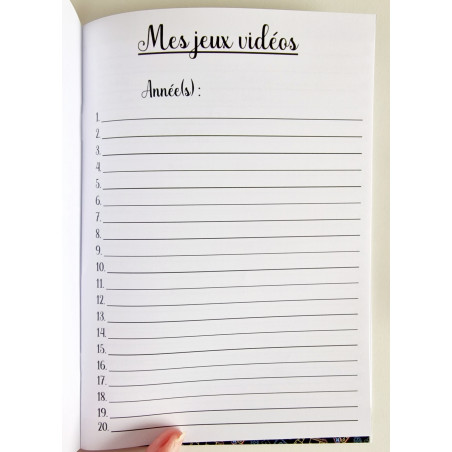 Mes jeux vidéos
Année(s) :
1.
2.
3.
4.
5.
6.
7.
8.
9.
10.
11.
12.
13.
14.
15.
16.
17.
18.
19.
20.